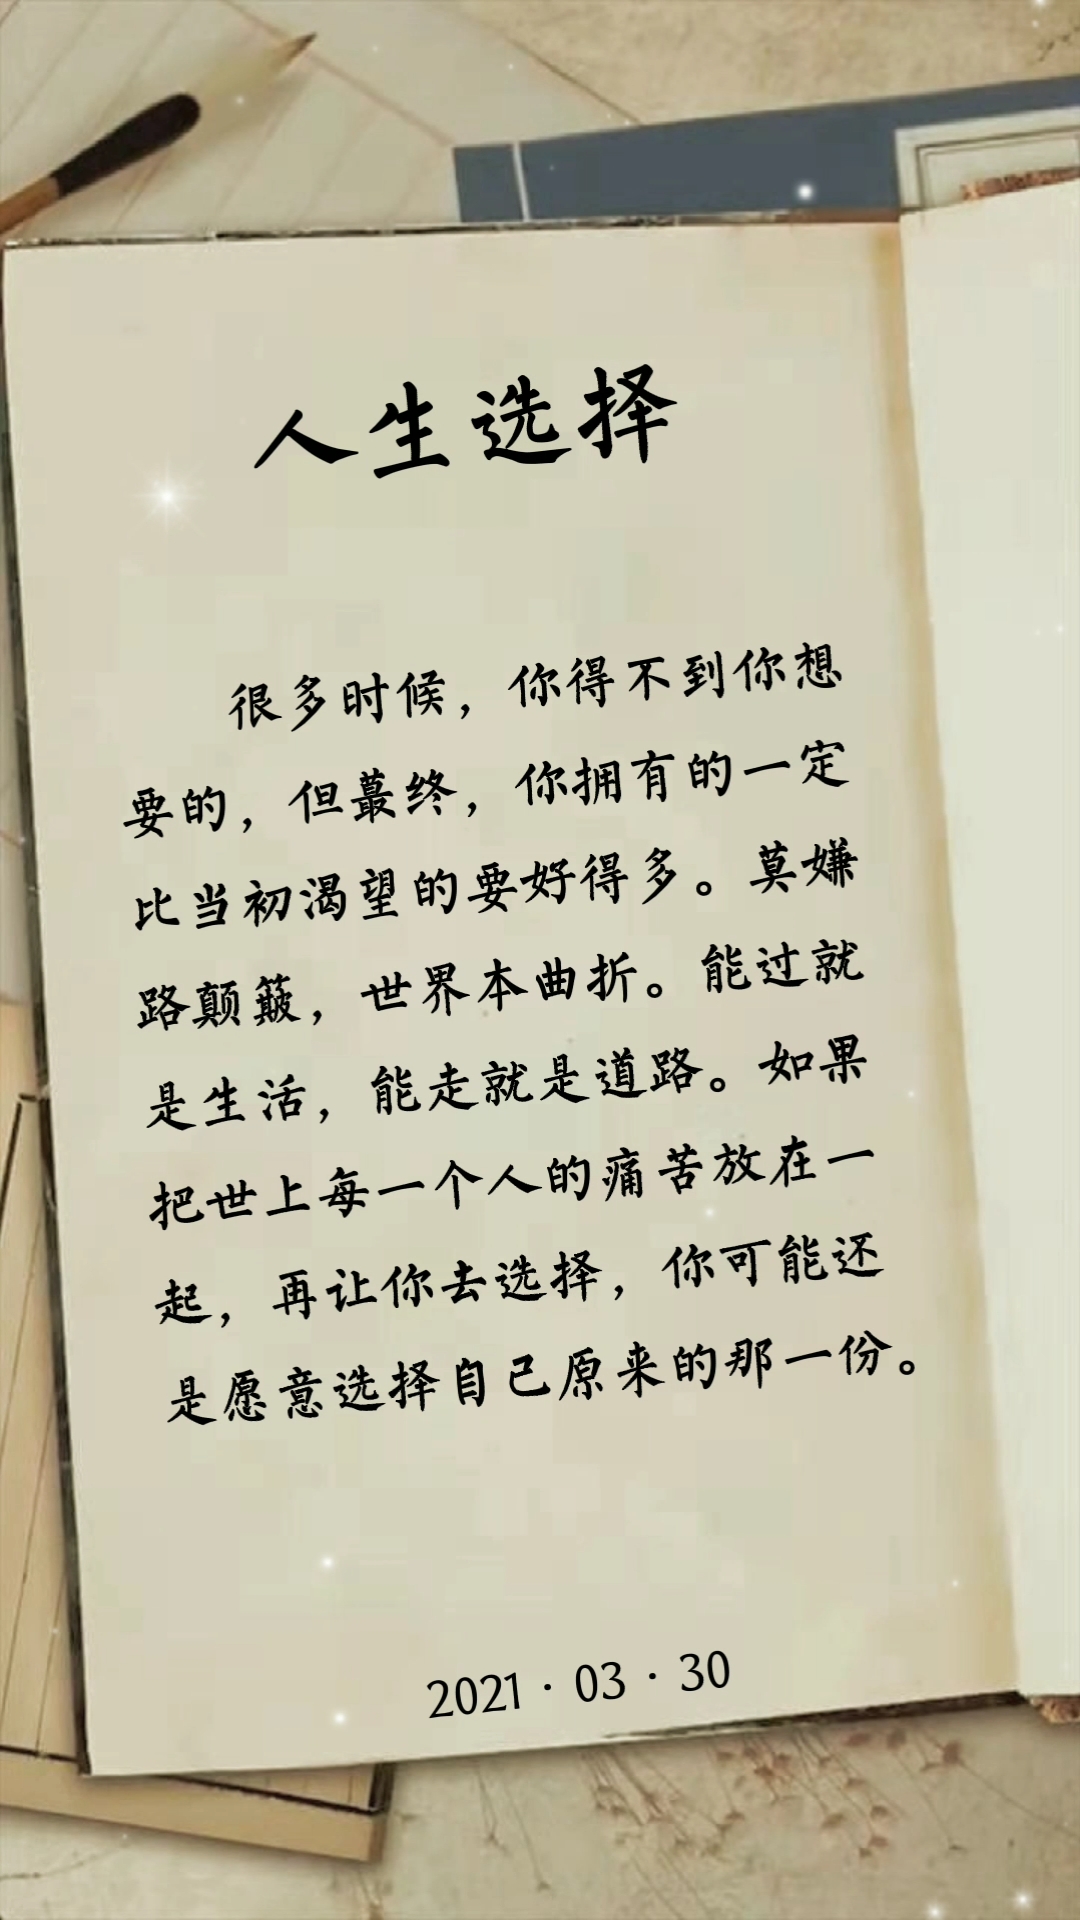 人生选择
很多时候，你得不到你想
要的，但蕞终，你拥有的一定
比当初渴望的要好得多。莫嫌
路颠簸，世界本曲折。能过就
是生活，能走就是道路。如果
把世上每一个人的痛苦放在一
起，再让你去选择，你可能还
是愿意选择自己原来的那一份。
2021·03·30